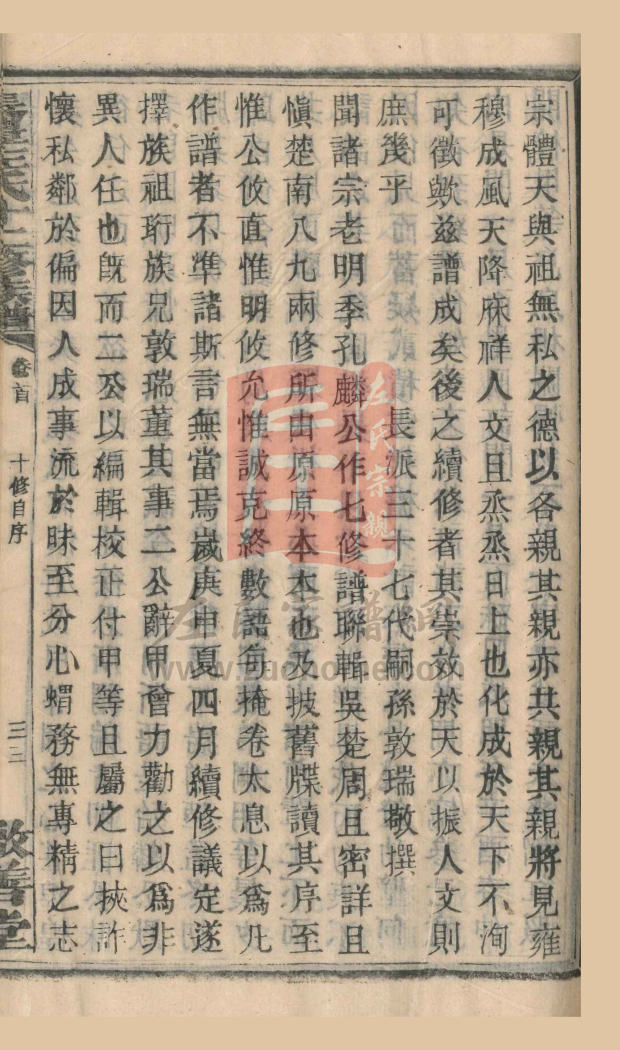 宗體天與祖無私之德以各親其親亦共親其親將見雍
穆成風天降庥祥人文且烝烝日上也化成於天下不洵
可徵歟兹譜成矣後之續修者其崇效於天以振人文則
庶幾乎
長派三十七代嗣孫敦瑞敬撰
聞諸宗老明季孔麟公作七修譜聯輯吳楚周且密詳且
慎楚南八九兩修所由原原本本也及披舊牒讀其序至
惟公攸直惟明攸允惟誠克終數語每掩卷太息以爲凡
作譜者不準諸斯言無當焉嵗庚申夏四月續修議定遂
擇族祖珩族兄敦瑞董其事二公辭甲曾力勸之以爲非
異人任也旣而二公以編輯校正付甲等且屬之曰挾詐
懷私鄰於偏因人成事流於昧至分心蝟務無專精之志
氏十二修族譜
卷首
十修自序
敬善堂
左氏宗親
左氏家譜網
www.zuohome.com